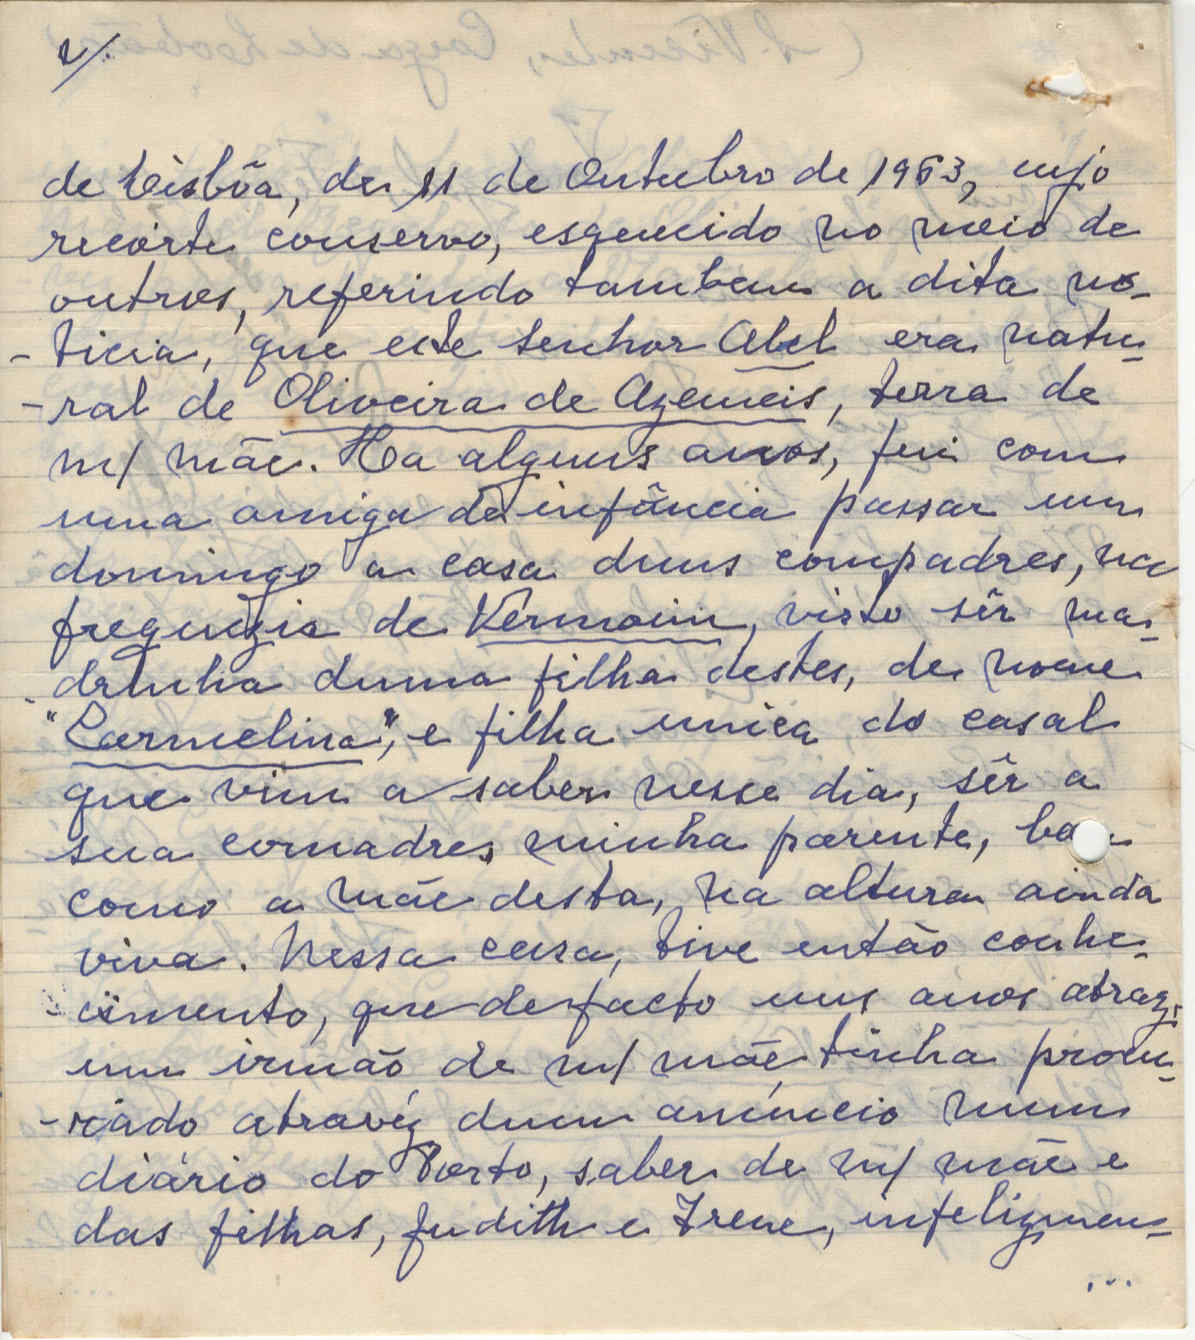 2/.
de Lisbôa, de 11 de Outubro de 1963, cujo
recorte conservo, esquecido no meio de
outros, referindo tambem a dita no-
-ticia, que este senhor Abel era natu-
-ral de Oliveira de Azemeis, terra de
m/ mãe. Ha alguns anos, fui com
uma amiga de infância passar um
domingo a casa duns compadres, na
freguezia de Vermoim, visto sêr ma-
-drinha duma filha destes, de nome
"Carmelina", e filha unica do casal
que vim a saber nesse dia, sêr a
sua comadre, minha parente, bem
como a mãe desta, na altura ainda
viva. Nessa casa, tive então conhe-
-cimento, que de facto uns anos atraz,
um irmão de m/ mãe tinha procu-
-rado atravéz dum anúncio num
diário do Porto, saber de m/ mãe e
das filhas, Judith e Irene, infelizmen-
...